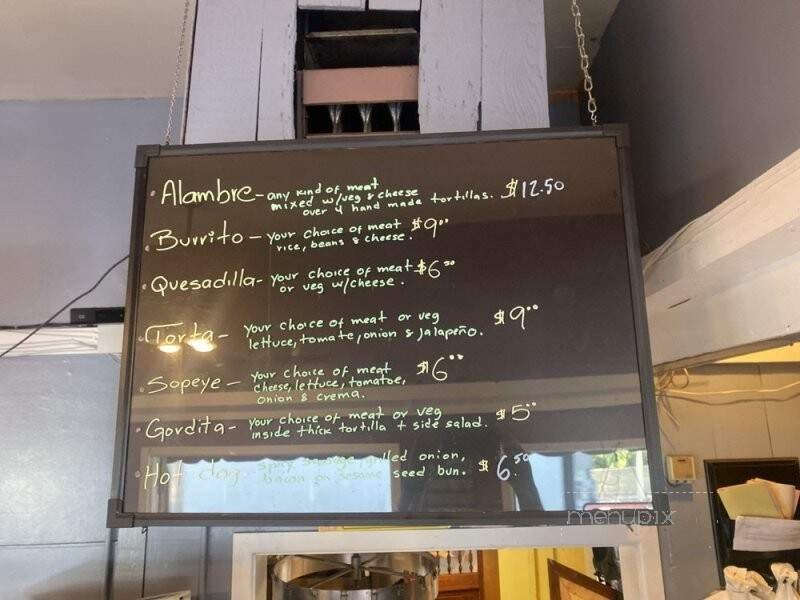 Alambre - any kind of meat
mixed w/veg & cheese
over 4 hand made tortillas. $12.50
Burrito - your choice of meat $9.00
rice, beans & cheese.
Quesadilla - your choice of meat $6.50
or veg w/cheese.
Torta - your choice of meat or veg $9.00
lettuce, tomate, onion & jalapeño.
Sopeye - your choice of meat $6.00
cheese, lettuce, tomatoe,
onion & crema.
Gordita - your choice of meat or veg $5.00
inside thick tortilla + side salad.
Hot dog onion,
seed bun. $6.50
menupix